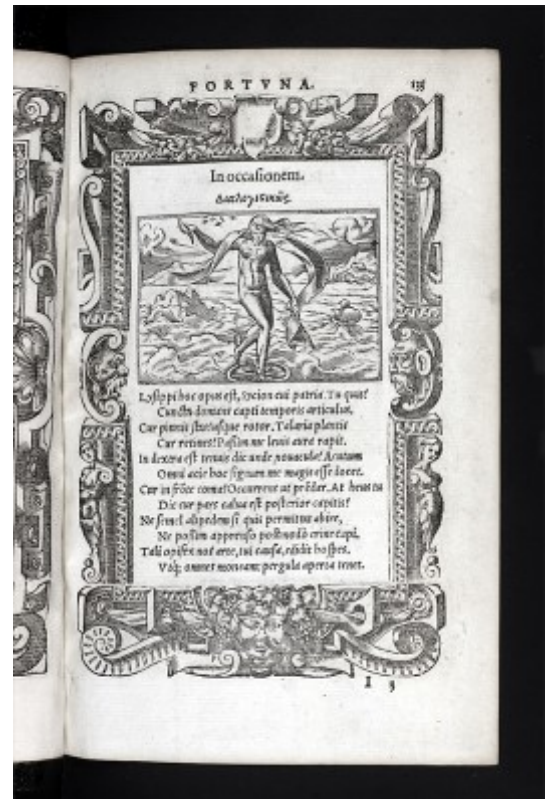 FORTVNA. 135
In occasionem.
Διαλογιστικῶς.
Lysippi hoc opus est, Sycion cui patria. Tu quis?
Cuncta domans capti temporis articulus.
Cur pinnis stas? usque rotor. Talaria plantis
Cur retines? Passim me levis aura rapit.
In dextra est tenuis dic unde novacula? Acutum
Omni acie hoc signum me magis esse docet.
Cur in frōte coma? Occurrens ut prēdar. At heus tu
Dic cur pars calva est posterior capitis?
Ne semel alipedem si quis permittat abire,
Ne possim apprenso postmodò crine capi.
Tali opifex nos arte, tui causa, edidit hospes.
Utq; omnes moneam: pergula aperta tenet.
I 3